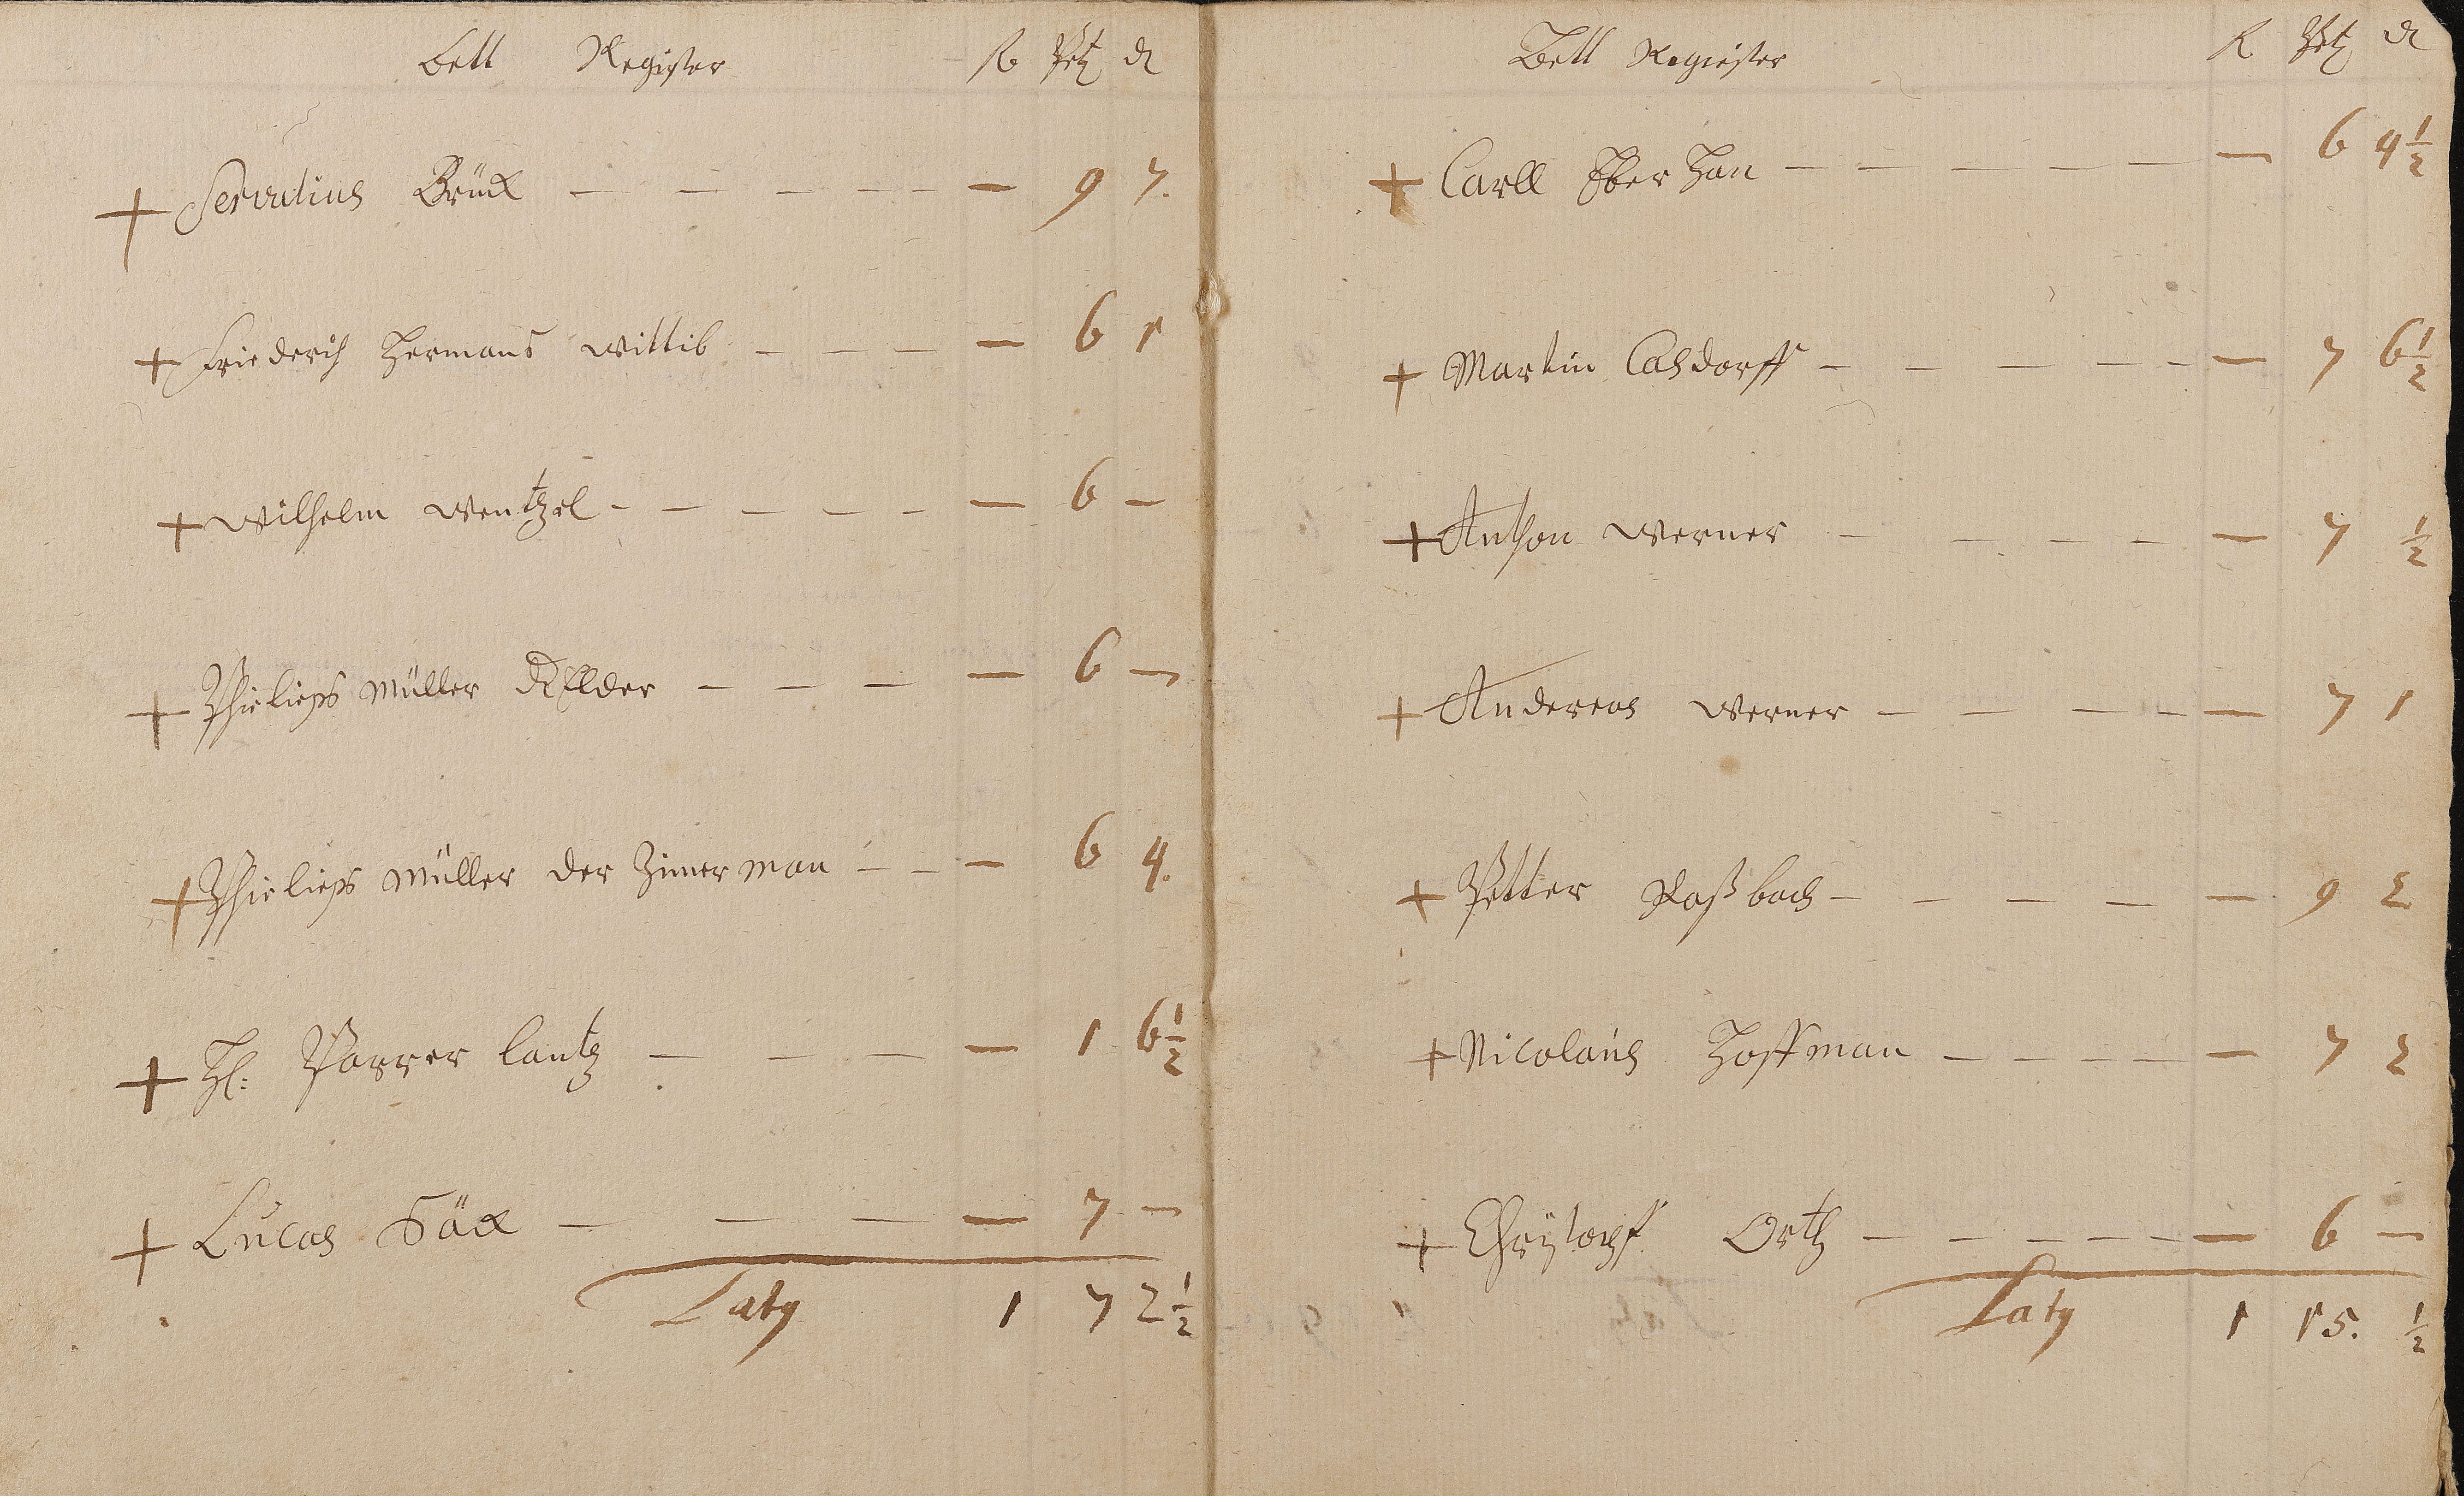 Bett Register R Btz d
+ Servatius Brück — — — — — — 9 7.
+ Friederich Hermans wittib — — — — 6 1
+ Wilhelm Wentzel - — — — — — 6 —
+ Phielieps Müller — — — — 6 —
+ Phielieps Müller der Zimerman — — — 6 4.
+ H: Parrer Lantz — — — — 1 6 1/2
+ Lucas Säck — — — — 7 —
Latus 1 7 2 1/2
Bett Regiester R Btz d
+ Carll Eber Han — — — — — — 6 4 1/2
+ Martin Casdorff — — — — — — — 7 6 1/2
+ Anthon Werner — — — — — 7 1/2
+ Andereas Werner — — — — — 7 1
+ Petter Roßbach — — — — — 9 2
+ Nicolaus Hoffman — — — — — 7 2
+ Chrystopf Orth — — — — — — 6 —
Latus 1 15. 1/2